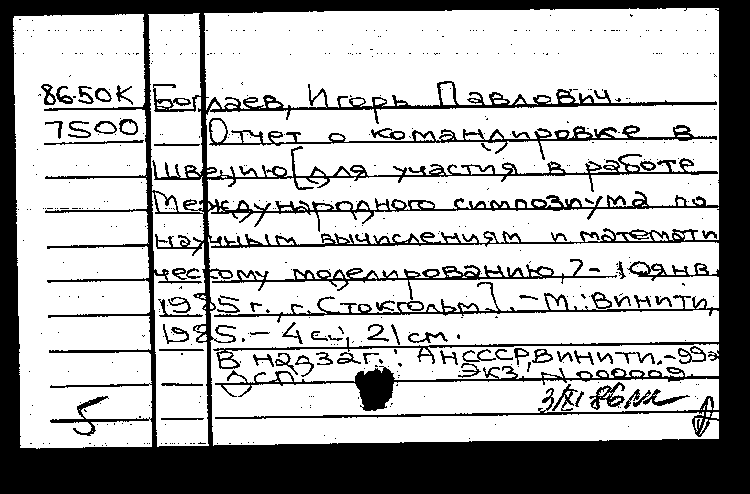 86-50К Боглаев, Игорь Павлович.
7500 Отчет о командировке в
Швецию [для участия в работе
Международного симпозиума по
научным вычислениям и математи
ческому моделированию, 7-10 янв.
1985 г., г. Стокгольм]. - М.: ВИНИТИ,
1985. - 4 с.; 21 см.
В надзаг.: АН СССР, ВИНИТИ. - 99э
ДСП. Экз. N 000009.
5 3/XI 86